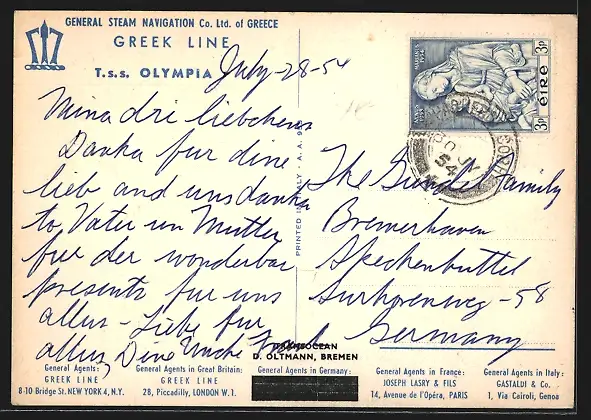 GENERAL STEAM NAVIGATION Co. Ltd. of GREECE
GREEK LINE
T.s.s. OLYMPIA
July-28-54
Mina dri liebchens
Danka fur dine
lieb and uns danka
to Vater un Mutter
fur der wonderbar
presents fur uns
allus - Liebe fur
allus, Dine
PRINTED IN ITALY - A. A. 95
EIRE
3p
3p
The Family
Bremerhaven
Speckenbuttel
-58
Germany
TRANSOCEAN
D. OLTMANN, BREMEN
General Agents:
GREEK LINE
8-10 Bridge St. NEW YORK 4, N.Y.
General Agents in Great Britain:
GREEK LINE
28, Piccadilly, LONDON W.1.
General Agents in Germany:
General Agents in France:
JOSEPH LASRY & FILS
14, Avenue de l'Opéra, PARIS
General Agents in Italy:
GASTALDI & Co.
1, Via Cairoli, Genoa